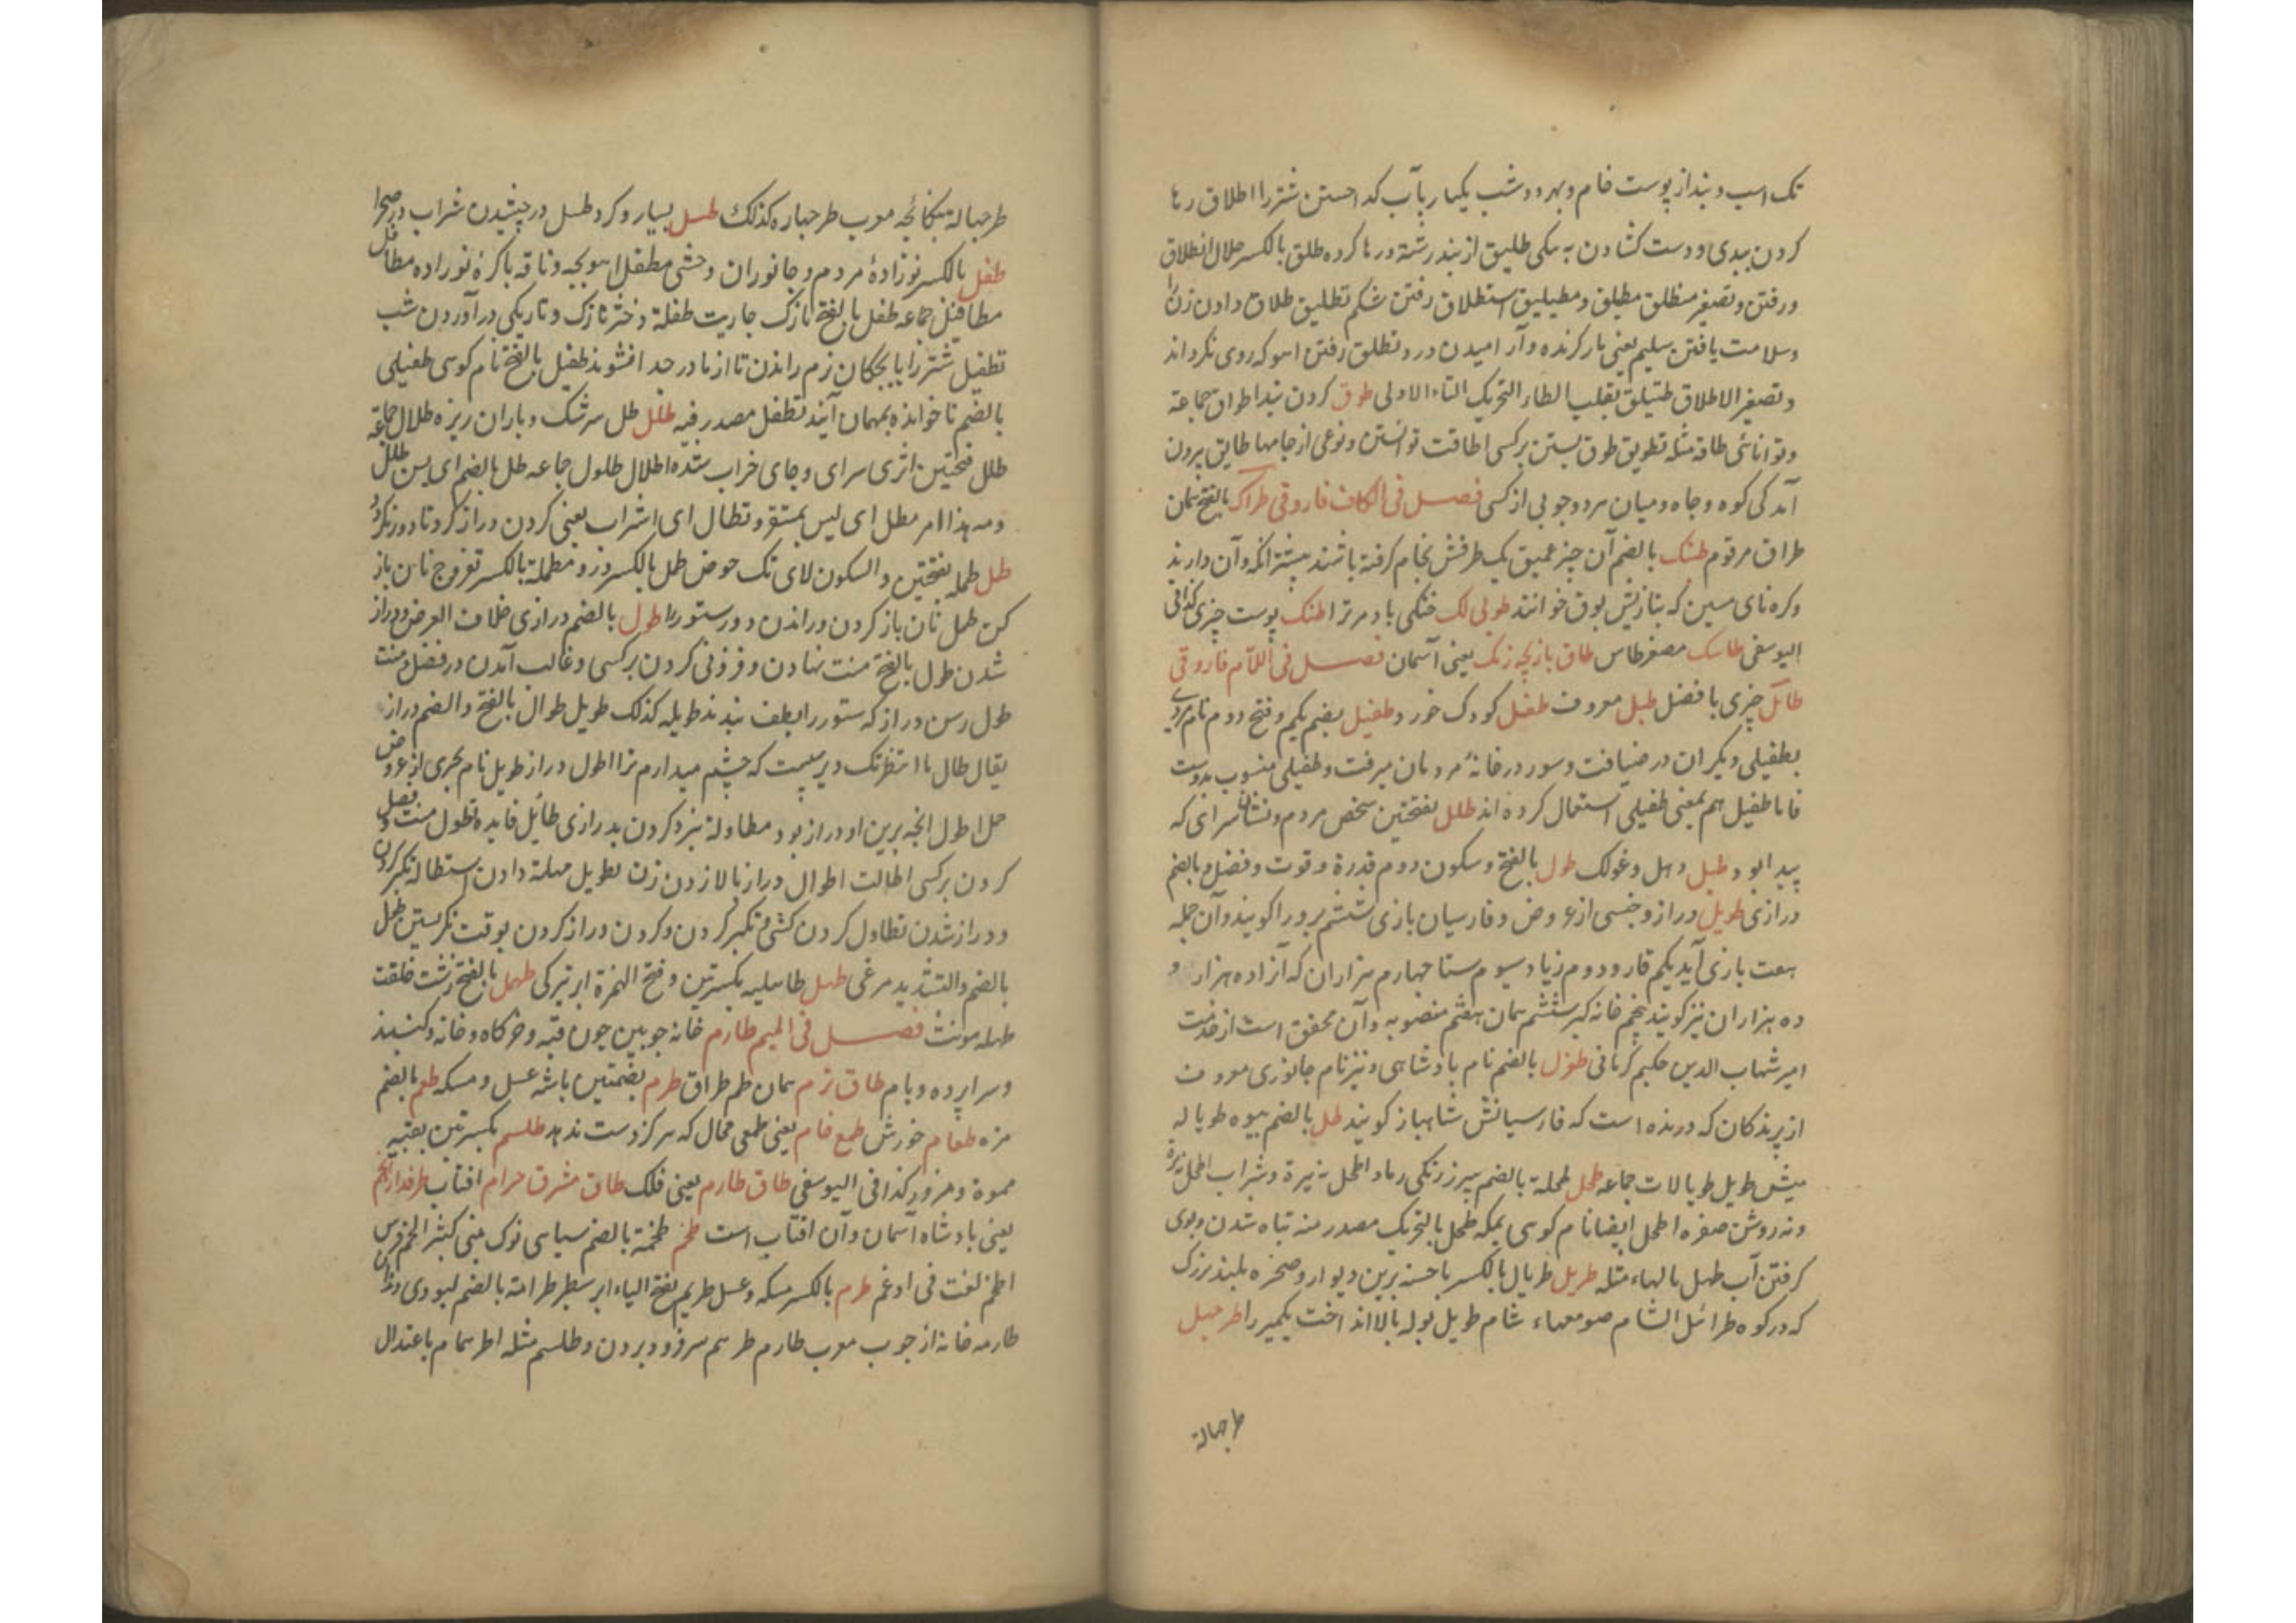 تک اسب و بند از پوست خام و بهره و شب یکبار بآب کذاشتن شتر را اطلاق رها
کردن بندی و دست کشادن به نیکی طلیق از بند رسته و رها کرده طلق بالکسر حلال انطلاق
و رفتن و تصغیر منطلق مطیلق و مطیلیق استطلاق رفتن شکم تطلیق طلاق دادن زن را
و سلامت یافتن سلیم یعنی مار کزنده و آرامیدن درد و تطلق رفتن اهو که روی نکرداند
و تصغیر الاطلاق طتیلق بقلب الطاء التحریک التاء الاولی طوق کردن بند اطواق جماعة
و توانائی طاقه مثله تطویق طوق بستن بر کسی اطاقت توانستن و نوعی از جامها طایق برون
آمدکی کوه و چاه و میان هر دو چوبی از کسی فصل فی الکاف فاروقی طراک بالفتح همان
طراق مرقوم طشک بالضم آن چیز عمیق یک طرفش بخام کرفته باشند بیشتر آنکه و آن دارند
و کره نای مسین که بتازیش بوق خوانند طوبی لک خنکی باد مر ترا طنک پوست چیزی کذا فی
الیوسفی طاسک مصغر طاس طاق بازیچه رنک یعنی آسمان فصل فی اللام فاروقی
طائل چیزی با فضل طبل معروف طفل کودک خورد طفیل بضم یکم و فتح دوم نام مردی
بطفیلی دیکران در ضیافت و سور در خانهٔ مردمان میرفت و طفیلی منسوب بدوست
فاما طفیل هم بمعنی طفیلی استعمال کرده اند طلل بفتحتین شخص مردم و نشان سرای که
پیدا بود طبل دهل و غولک طول بالفتح و سکون دوم قدرة و قوت و فضل و بالضم
درازی طویل دراز و جنسی از عروض و فارسیان بازی ششم برو را کویند و آن جمله
هفت بازی آید یکم فارد دوم زیاد سیوم ستا چهارم هزاران که آنرا ده هزار و
ده هزاران نیز کویند پنجم خانه کیر ششم همان هفتم منصوبه و آن محقق است از خدمت
امیر شهاب الدین حکیم کرمانی طغرل بالضم نام بادشاهی و نیز نام جانوری معروف
از پرندکان که درنده است که فارسیانش شاهباز کویند طل بالضم میوه طوبا له
میش طویل طوبالات جماعه طحل طحلة بالضم سپرز رنکی رماد اطحل تیره و شراب اطحل تیره
و نه روشن صفره اطحل ایضا نام کوهی بمکه طحل بالتحریک مصدر منه تباه شدن و بوی
کرفتن آب طهل بالهاء مثله طربل طربال بالکسر باحسه برین دیوار و صخره بلند بزرک
که در کوه طرائل الشام صومعهاء شام طربل بوله بالا انداخت کمیز را طرجهل
طرجهالة
طرجهالة پنکانچه معرب طرجهاره کذلک طسل بسیار و کرد طسل درخشیدن شراب در صحرا
طفل بالکسر نوزادهٔ مردم و جانوران وحشی مطفل اهو بچه و ناقه باکرهٔ نوزاده مطافل
مطافیل جماعه طفل بالفتح نازک جاریت طفلة دختر نازک و تاریکی در آوردن شب
تطفیل شتر را با بچکان نرم راندن تا از مادر جدا نشوند طفیل بالفتح نام کوهی طفیلی
بالضم ناخوانده بمهمان آیند تطفل مصدر فیه طلل طل سرشک و باران ریزه طلال جماعة
طلل فتحتین اثری سرای و جای خراب شده اطلال طلول جماعه طل بالضم ای لبن طلل
دمه هذا امر مطل ای لیس بمستقر و تطال ای اشراب یعنی کردن دراز کرد تا دور نکرد
طمل طمله بفتحتین و السکون لای تک حوض طمل بالکسر دزد و مطملة بالکسر تفروج نان باز
کن طمل نان باز کردن و راندن ستور را طول بالضم درازی خلاف العرض و دراز
شدن طول بالفتح منت نهادن و فزونی کردن بر کسی و غالب آمدن در فضل و منت
طول رسن دراز که ستور را بعلف بندند طویله کذلک طویل طوال بالفتح و الضم دراز
یقال طال ما انتظرتک دیریست که چشم میدارم ترا اطول دراز طویل نام بحری از عروض
حل اطول انچه برین او دراز بود مطاولة نبرد کردن بدرازی طائل فایده تطول منت و فضل
کردن بر کسی اطالت اطوال دراز بالا زدن زن تطویل مهلة دادن استطاله تکبر کردن
و دراز شدن تطاول کردن کشی و تکبر کردن و کردن دراز کردن بوقت نکریستن طول
بالضم و التشدید مرغی طهل طاهلیه بکسرتین و فتح الهمزة ابر تنرکی طهمل بالفتح زشت خلقت
طهله مونث فصل فی المیم طارم خانهٔ چوبین چون قبه و خرکاه و خانه و کنبند
و سراپرده و بام طاق ترم همان طم طراق طرم بضمتین باشه عسل و مسکه طعم بالضم
مزه طعام خورش طمع خام یعنی طمعی محال که هرکز دست ندهد طلسم بکسرتین بعتبیه
مموة و مزور کذا فی الیوسفی طاق طارم یعنی فلک طاق مشرق حرام افتاب طرفدار انجم
یعنی بادشاه آسمان و آن افتاب است طخم طخمة بالضم سیاهی نوک بینی کبش الخم فرس
اطخم لغت فی ادغم طرم بالکسر مسکه و عسل طریم بفتح الیاء ابر سطبر طرامة بالضم کبودی دندان
طارمه خانه از چوب معرب طارم طرسم سر فرود بردن و طلسم مثله اطرهمام با عتدال